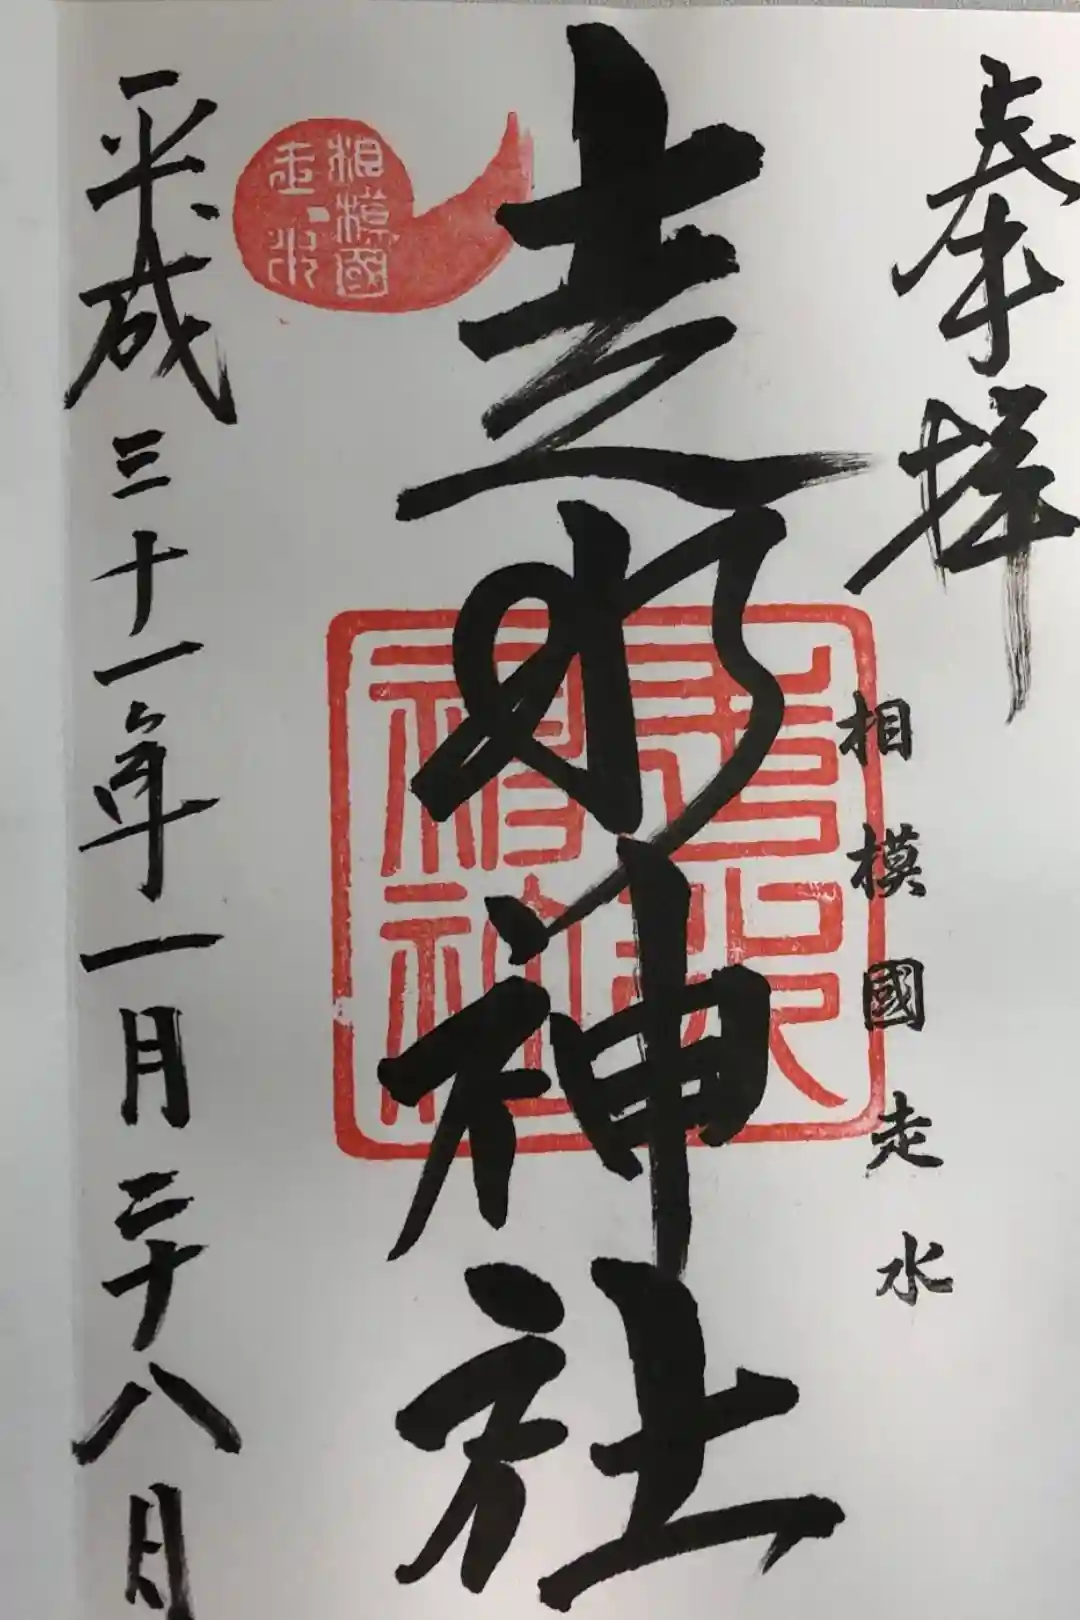 奉拝
相模國走水
走水神社
相模國
走水
走水
神社
平成三十一年一月二十八日